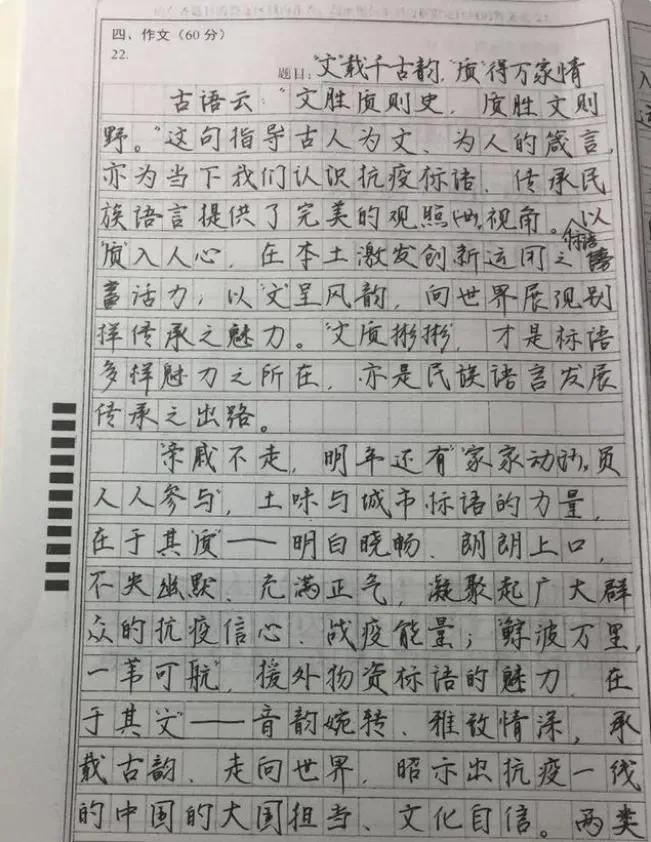 四、作文（60分）
22.
题目："文"载千古韵，"质"得万家情
古语云："文胜质则史，质胜文则
野。"这句指导古人为文、为人的箴言，
亦为当下我们认识抗疫标语、传承民
族语言提供了完美的观照视角。以
"质"入人心，在本土激发创新运用之标语
活力；以"文"呈风韵，向世界展现别
样传承之魅力。"文质彬彬"，才是标语
多样魅力之所在，亦是民族语言发展
传承之出路。
"亲戚不走，明年还有""家家动员，
人人参与"，土味与城市标语的力量，
在于其"质"——明白晓畅、朗朗上口，
不失幽默、充满正气，凝聚起广大群
众的抗疫信心、战疫能量；"鲸波万里，
一苇可航"，援外物资标语的魅力，在
于其"文"——音韵婉转、雅致情深，承
载古韵、走向世界，昭示出抗疫一线
的中国的大国担当、文化自信。两类
入